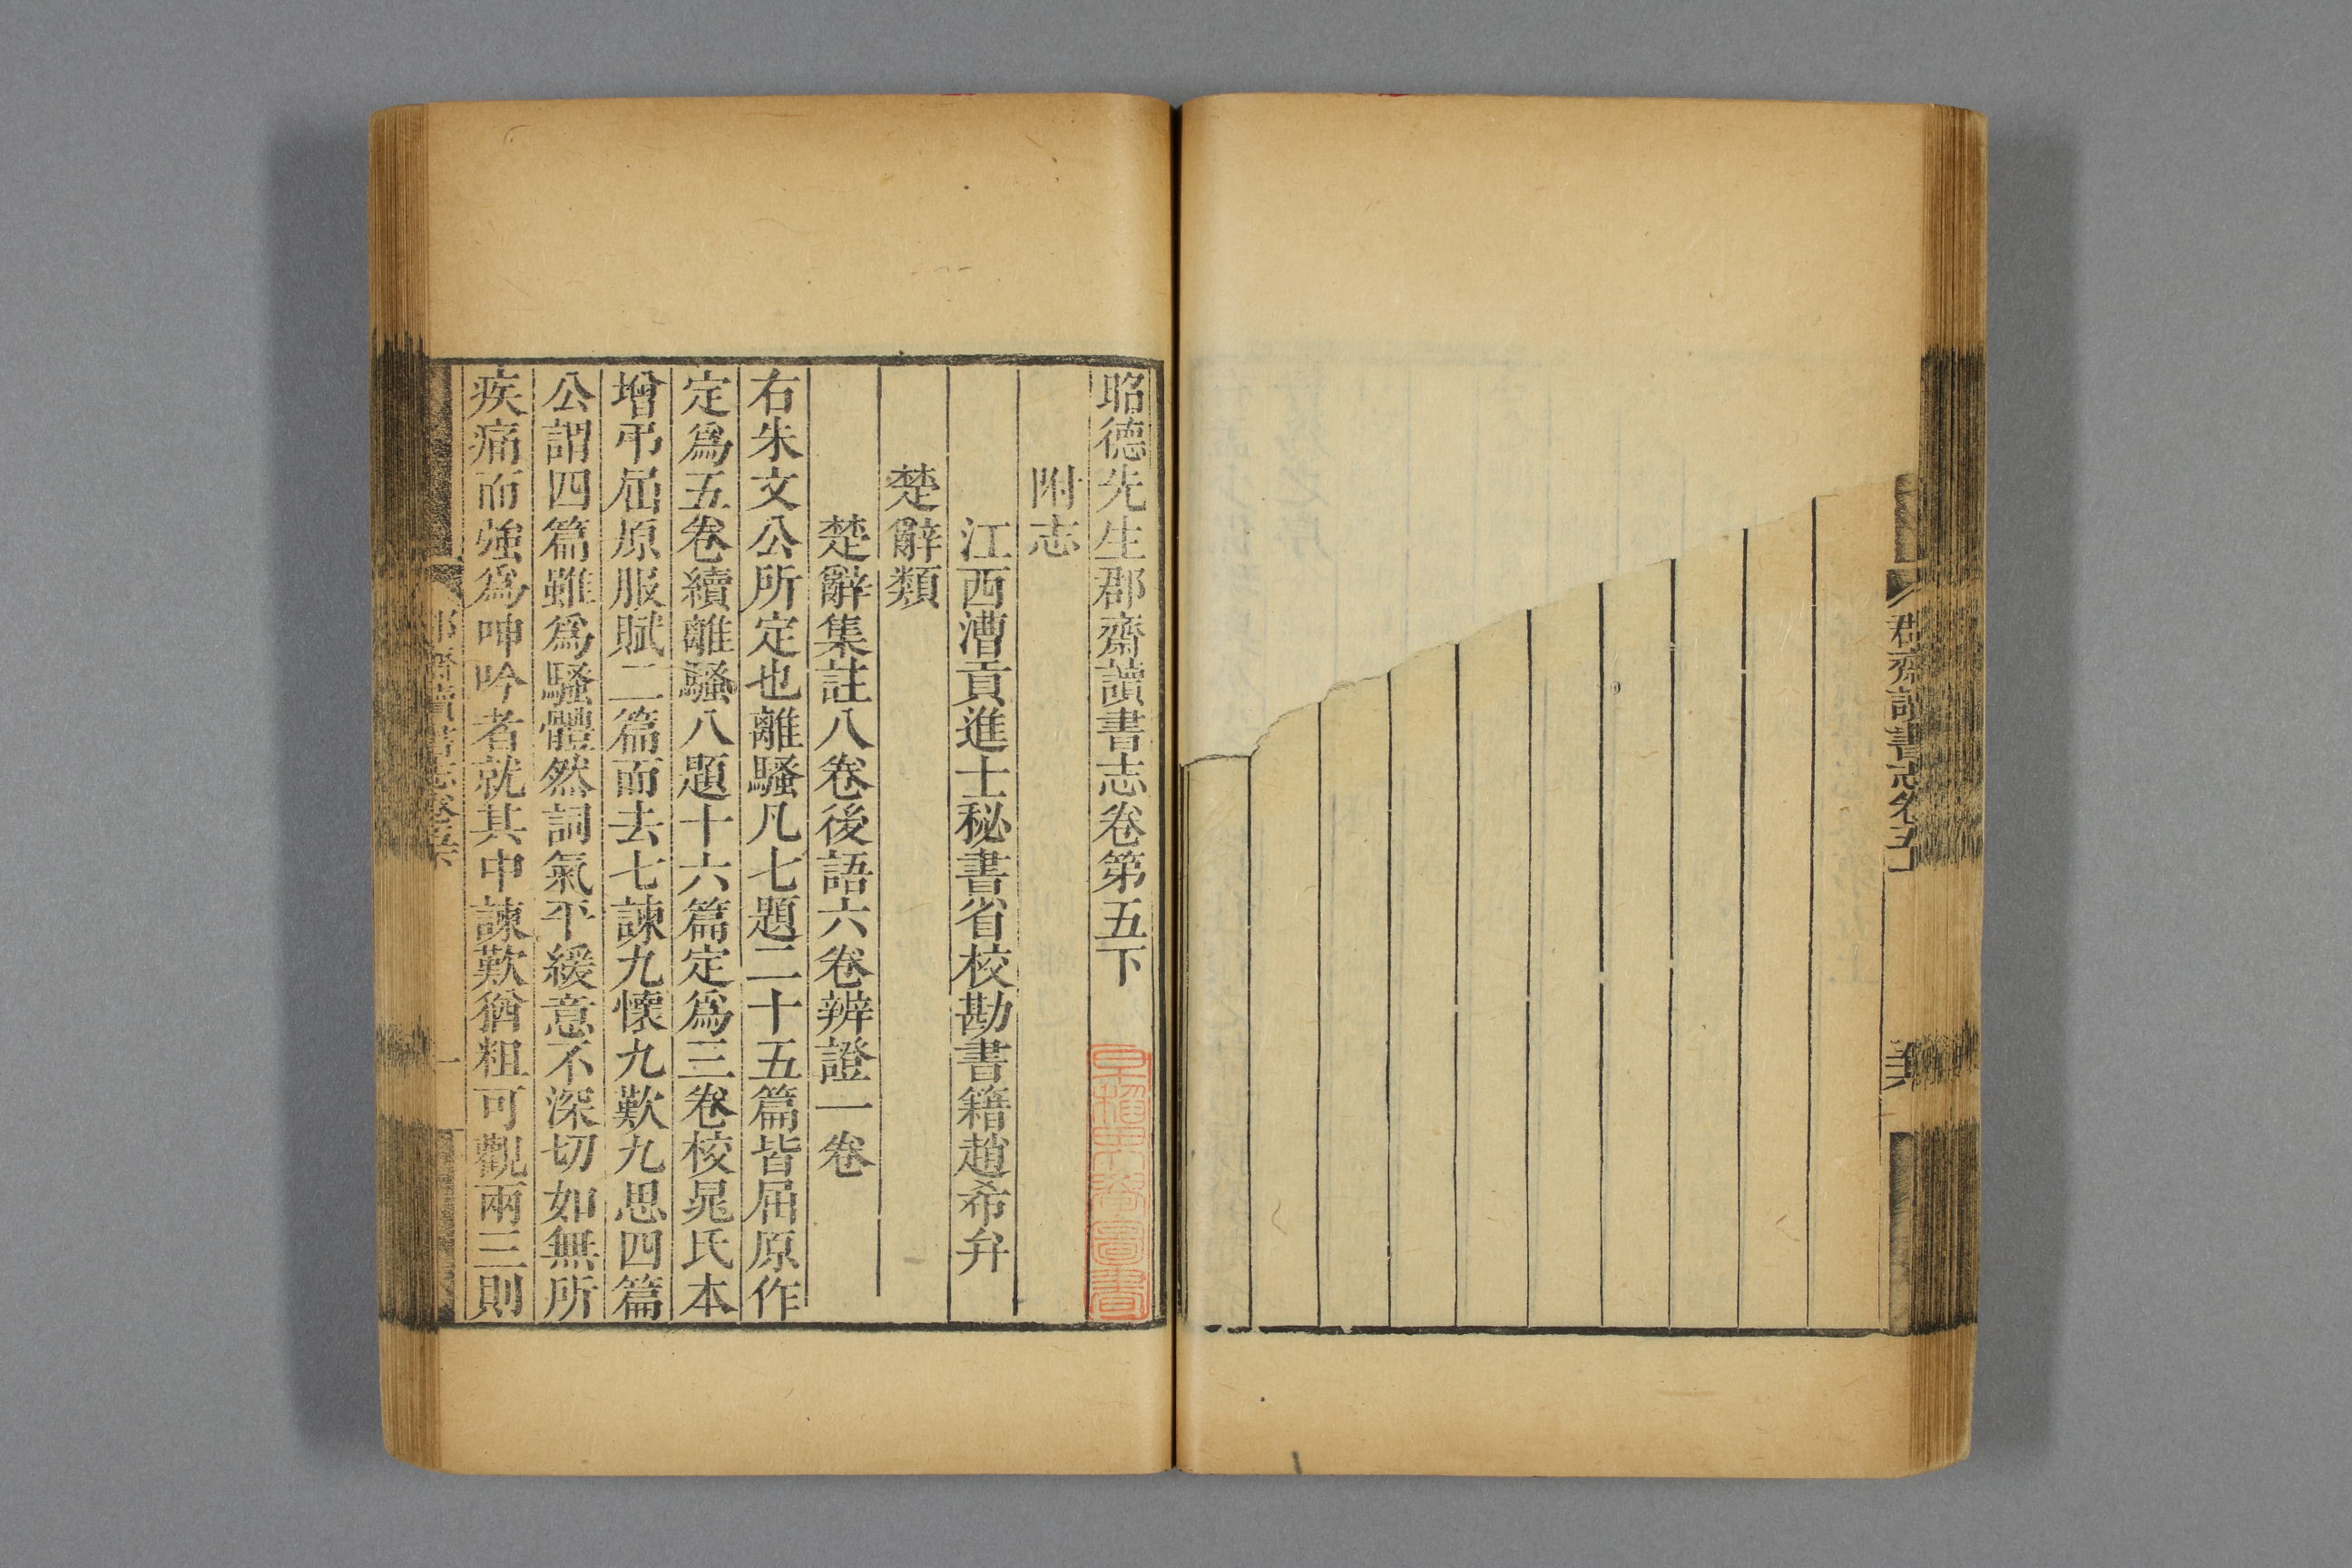 郡齋讀書志卷五上
昭德先生郡齋讀書志卷第五下
附志
江西漕貢進士秘書省校勘書籍趙希弁
楚辭類
楚辭集註八卷後語六卷辨證一卷
右朱文公所定也離騷凡七題二十五篇皆屈原作
定爲五卷續離騷八題十六篇定爲三卷校晁氏本
增弔屈原服賦二篇而去七諫九懷九歎九思四篇
公謂四篇雖爲騷體然詞氣平緩意不深切如無所
疾痛而強爲呻吟者就其中諫歎猶粗可觀兩三則